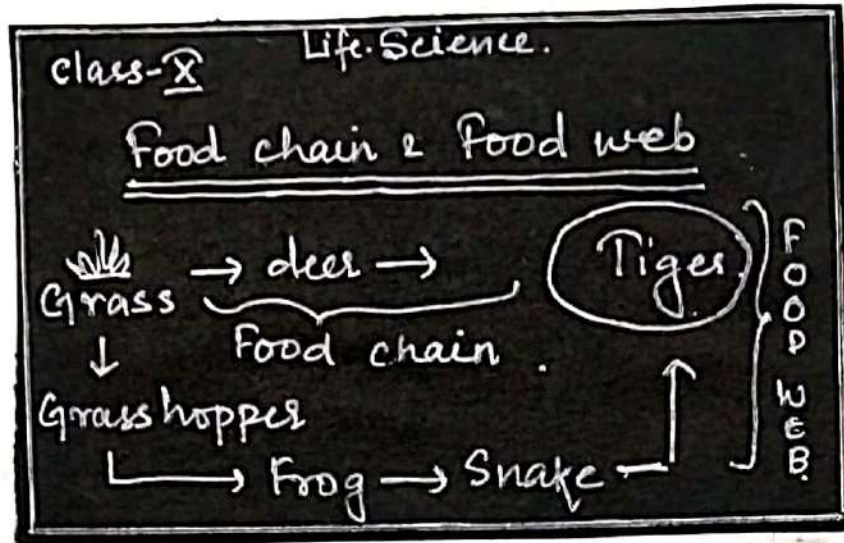 Life. Science.
Class-X
Food chain & Food web
Grass → deer → Tiger
Food chain.
↓
Grasshopper
→ Frog → Snake →
FOOD WEB.